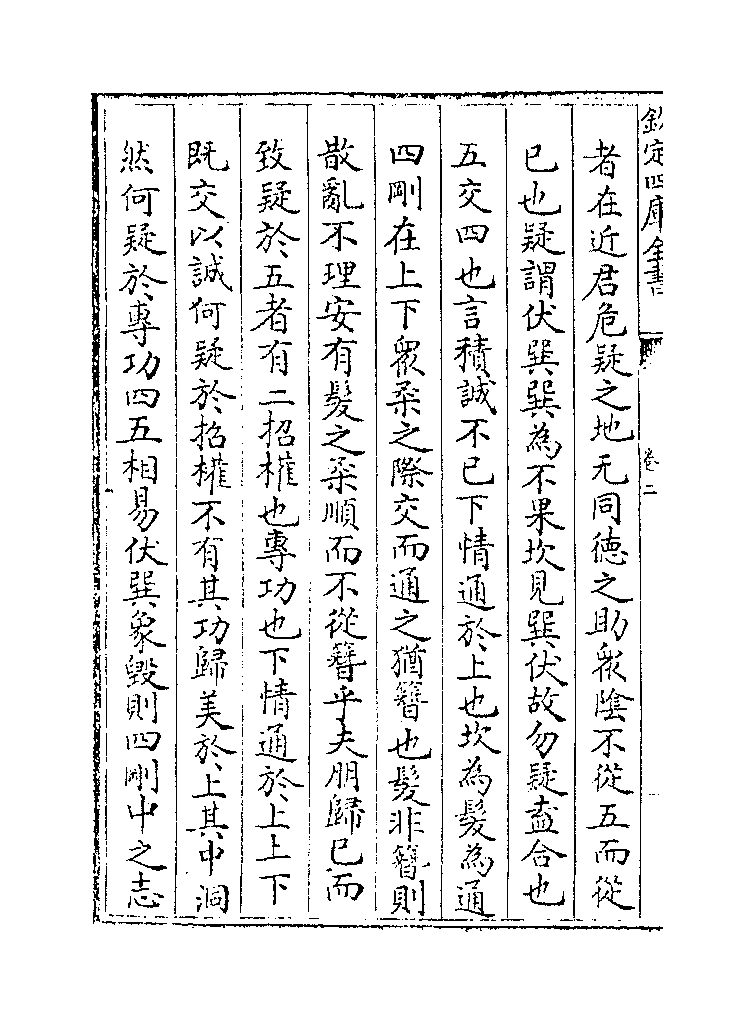 欽定四庫全書
卷二
者在近君危疑之地无同德之助衆陰不從五而從
已也疑謂伏巽巽為不果坎見巽伏故勿疑盍合也
五交四也言積誠不已下情通於上也坎為髮為通
四剛在上下衆柔之際交而通之猶簪也髮非簪則
散亂不理安有髮之柔順而不從簪乎夫朋歸已而
致疑於五者有二招權也專功也下情通於上上下
既交以誠何疑於招權不有其功歸美於上其中洞
然何疑於專功四五相易伏巽象毀則四剛中之志